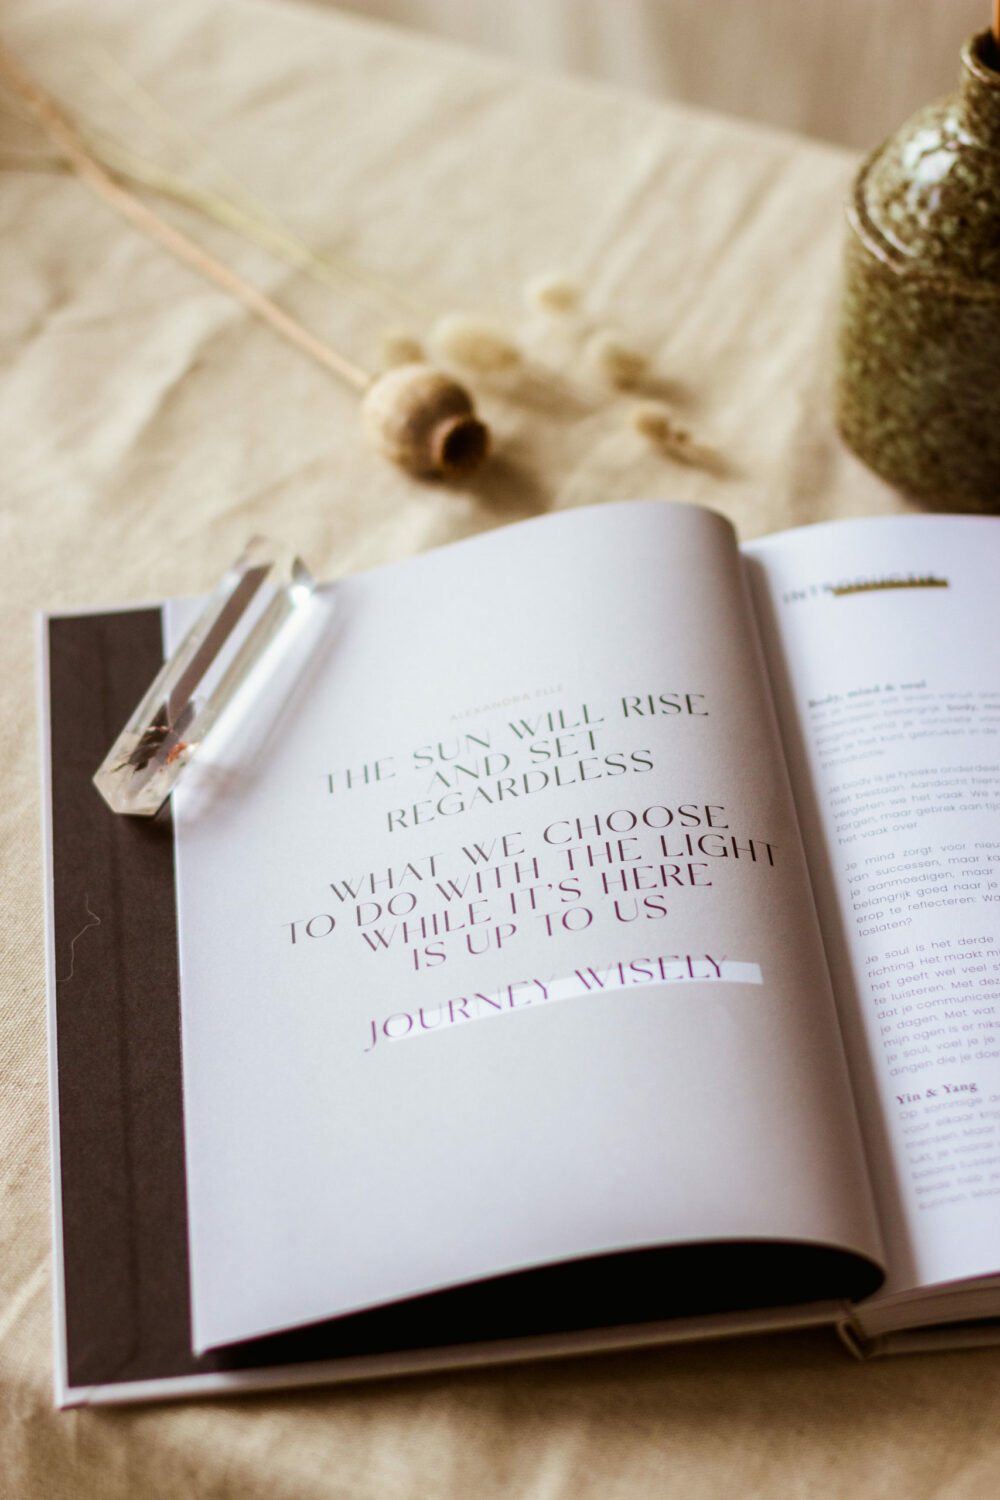 ALEXANDRA ELLE
THE SUN WILL RISE
AND SET
REGARDLESS
WHAT WE CHOOSE
TO DO WITH THE LIGHT
WHILE IT'S HERE
IS UP TO US
JOURNEY WISELY
INTRODUCTIE
Body, mind & soul
introductie.
Je body is je fysieke onderdeel
niet bestaan. Aandacht hierv
vergeten we het vaak. We
zorgen, maar gebrek aan tij
het vaak over.
Je mind zorgt voor nieu
van successen, maar ka
je aanmoedigen, maar
belangrijk goed naar je
erop te reflecteren: Wa
loslaten?
Je soul is het derde
richting. Het maakt mi
het geeft wel veel s
te luisteren. Met dez
dat je communicee
je dagen. Met wat
mijn ogen is er niks
je soul, voel je je
dingen die je doe
Yin & Yang
Op sommige d
voor elkaar krij
mensen. Maar
lukt, je vooral